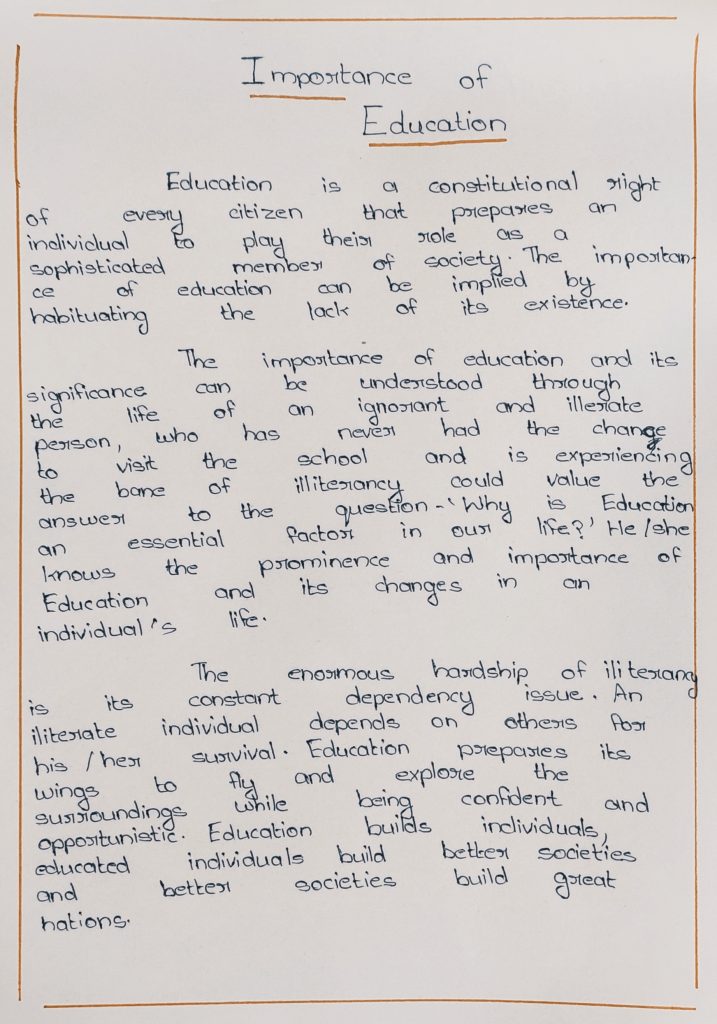 Importance of
Education
Education is a constitutional right
of every citizen that prepares an
individual to play their role as a
sophisticated member of society. The importan-
ce of education can be implied by
habituating the lack of its existence.
The importance of education and its
significance can be understood through
the life of an ignorant and illerate
person, who has never had the change
to visit the school and is experiencing
the bane of illiterancy could value the
answer to the question - 'Why is Education
an essential factor in our life?' He/she
knows the prominence and importance of
Education and its changes in an
individual's life.
The enormous hardship of iliterany
is its constant dependency issue. An
iliterate individual depends on others for
his/her survival. Education prepares its
wings to fly and explore the
surroundings while being confident and
opportunistic. Education builds individuals,
educated individuals build better societies
and better societies build great
nations.